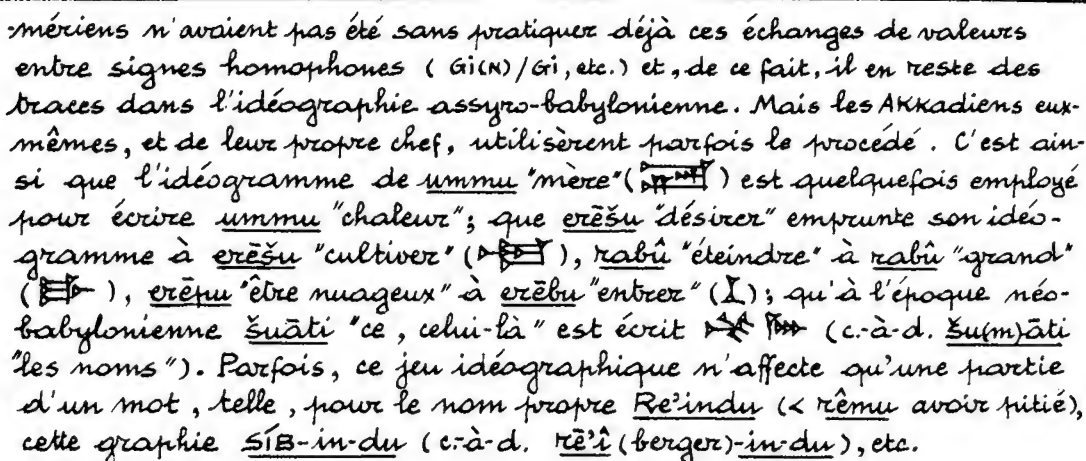 -mériens n'avaient pas été sans pratiquer déjà ces échanges de valeurs
entre signes homophones ( Gi(N)/Gi, etc.) et, de ce fait, il en reste des
traces dans l'idéographie assyro-babylonienne. Mais les AKKadiens eux-
mêmes, et de leur propre chef, utilisèrent parfois le procédé. C'est ain-
si que l'idéogramme de ummu "mère" (𒂼) est quelquefois employé
pour écrire ummu "chaleur"; que erēšu "désirer" emprunte son idéo-
gramme à erēšu "cultiver" (𒀳), rabû "éteindre" à rabû "grand"
(𒃲), erēpu "être nuageux" à erēbu "entrer" (𒌋); qu'à l'époque néo-
babylonienne šuāti "ce, celui-là" est écrit 𒈬 𒈨𒌍 (c.-à-d. šu(m)āti
"les noms"). Parfois, ce jeu idéographique n'affecte qu'une partie
d'un mot, telle, pour le nom propre Re'indu (< rêmu avoir pitié),
cette graphie SÍB-in-du (c.-à-d. rē'î (berger)-in-du), etc.